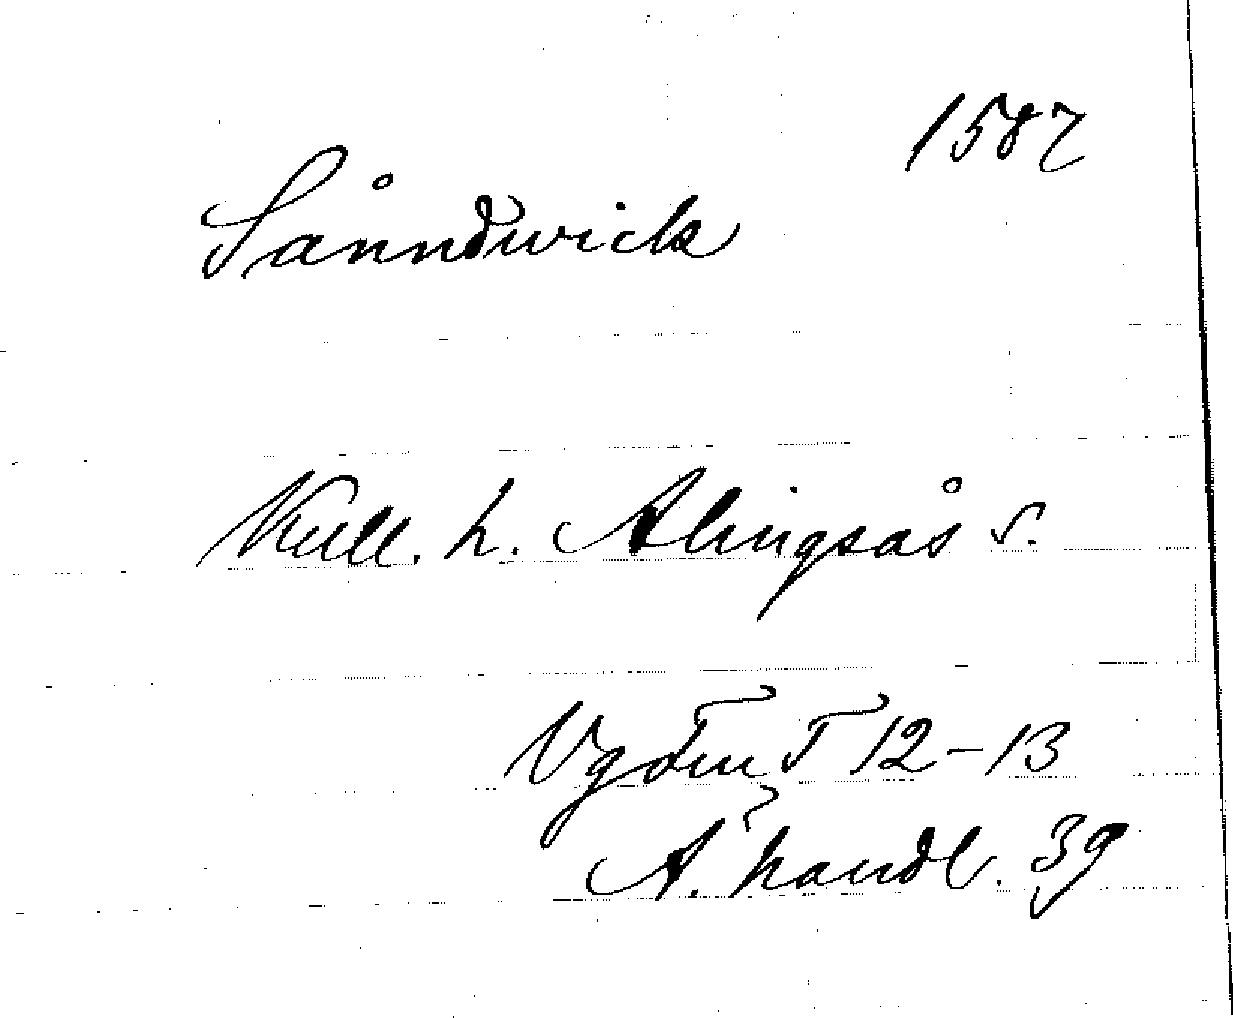 1587
Sånndwick
Kull. h. Alingsås s.
Vg Töm T 12-13
A. handl. 39